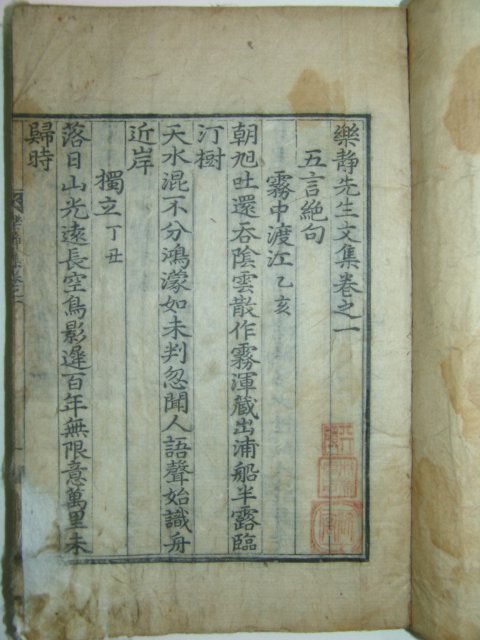 樂靜先生文集卷之一
五言絶句
霧中渡江 乙亥
朝旭吐還吞陰雲散作霧渾藏出浦船半露臨
汀樹
天水混不分鴻濛如未判忽聞人語聲始識舟
近岸
獨立 丁丑
落日山光遠長空鳥影遲百年無限意萬里未
歸時